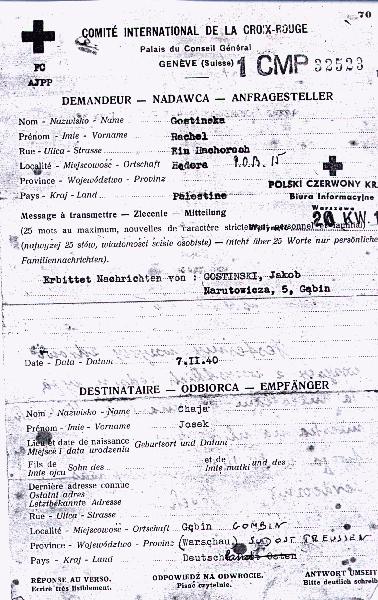 70
COMITÉ INTERNATIONAL DE LA CROIX-ROUGE
Palais du Conseil Général
GENÈVE (Suisse)
1 CMP 32523
FC
AJPP
DEMANDEUR — NADAWCA — ANFRAGESTELLER
Nom - Nazwisko - Name Gostinska
Prénom - Imie - Vorname Rachel
Rue - Ulica - Strasse Ein Hachoroch
Localité - Miejscowość - Ortschaft Hedera P.O.B. 15
Province - Województwo - Provinz
Pays - Kraj - Land Palestine
POLSKI CZERWONY KR
Biura Informacyjne
Warszawa
Message à transmettre — Zlecenie - Mitteilung
(25 mots au maximum, nouvelles de caractère
(najwyżej 25 słów, wiadomości ściśle osobiste) — (nicht über 25 Worte nur persönliche
Familiennachrichten).
Erbittet Nachrichten von : GOSTINSKI, Jakob
Narutowicza, 5, Gąbin
Date - Data - Datum 7.II.40
DESTINATAIRE - ODBIORCA — EMPFÄNGER
Nom - Nazwisko - Name Chaja
Prénom - Imie - Vorname Josek
Lieu et date de naissance Geburtsort und Datum
Miejsce i data urodzenia
Fils de et de
Imie ojcu Sohn des Imie matki und des
Dernière adresse connue
Ostatni adres
Letztbekannte Adresse
Rue - Ulica - Strasse
Localité - Miejscowość - Ortschaft Gąbin GOMBIN
Province - Województwo - Provinz (Warschau) SÜDOST PREUSSEN
Pays - Kraj - Land Deutschland Osten
RÉPONSE AU VERSO. ODPOWIEDŹ NA ODWROCIE. ANTWORT UMSEIT
Ecrire très lisiblement. Pisać czytelnie. Bitte deutlich schreib